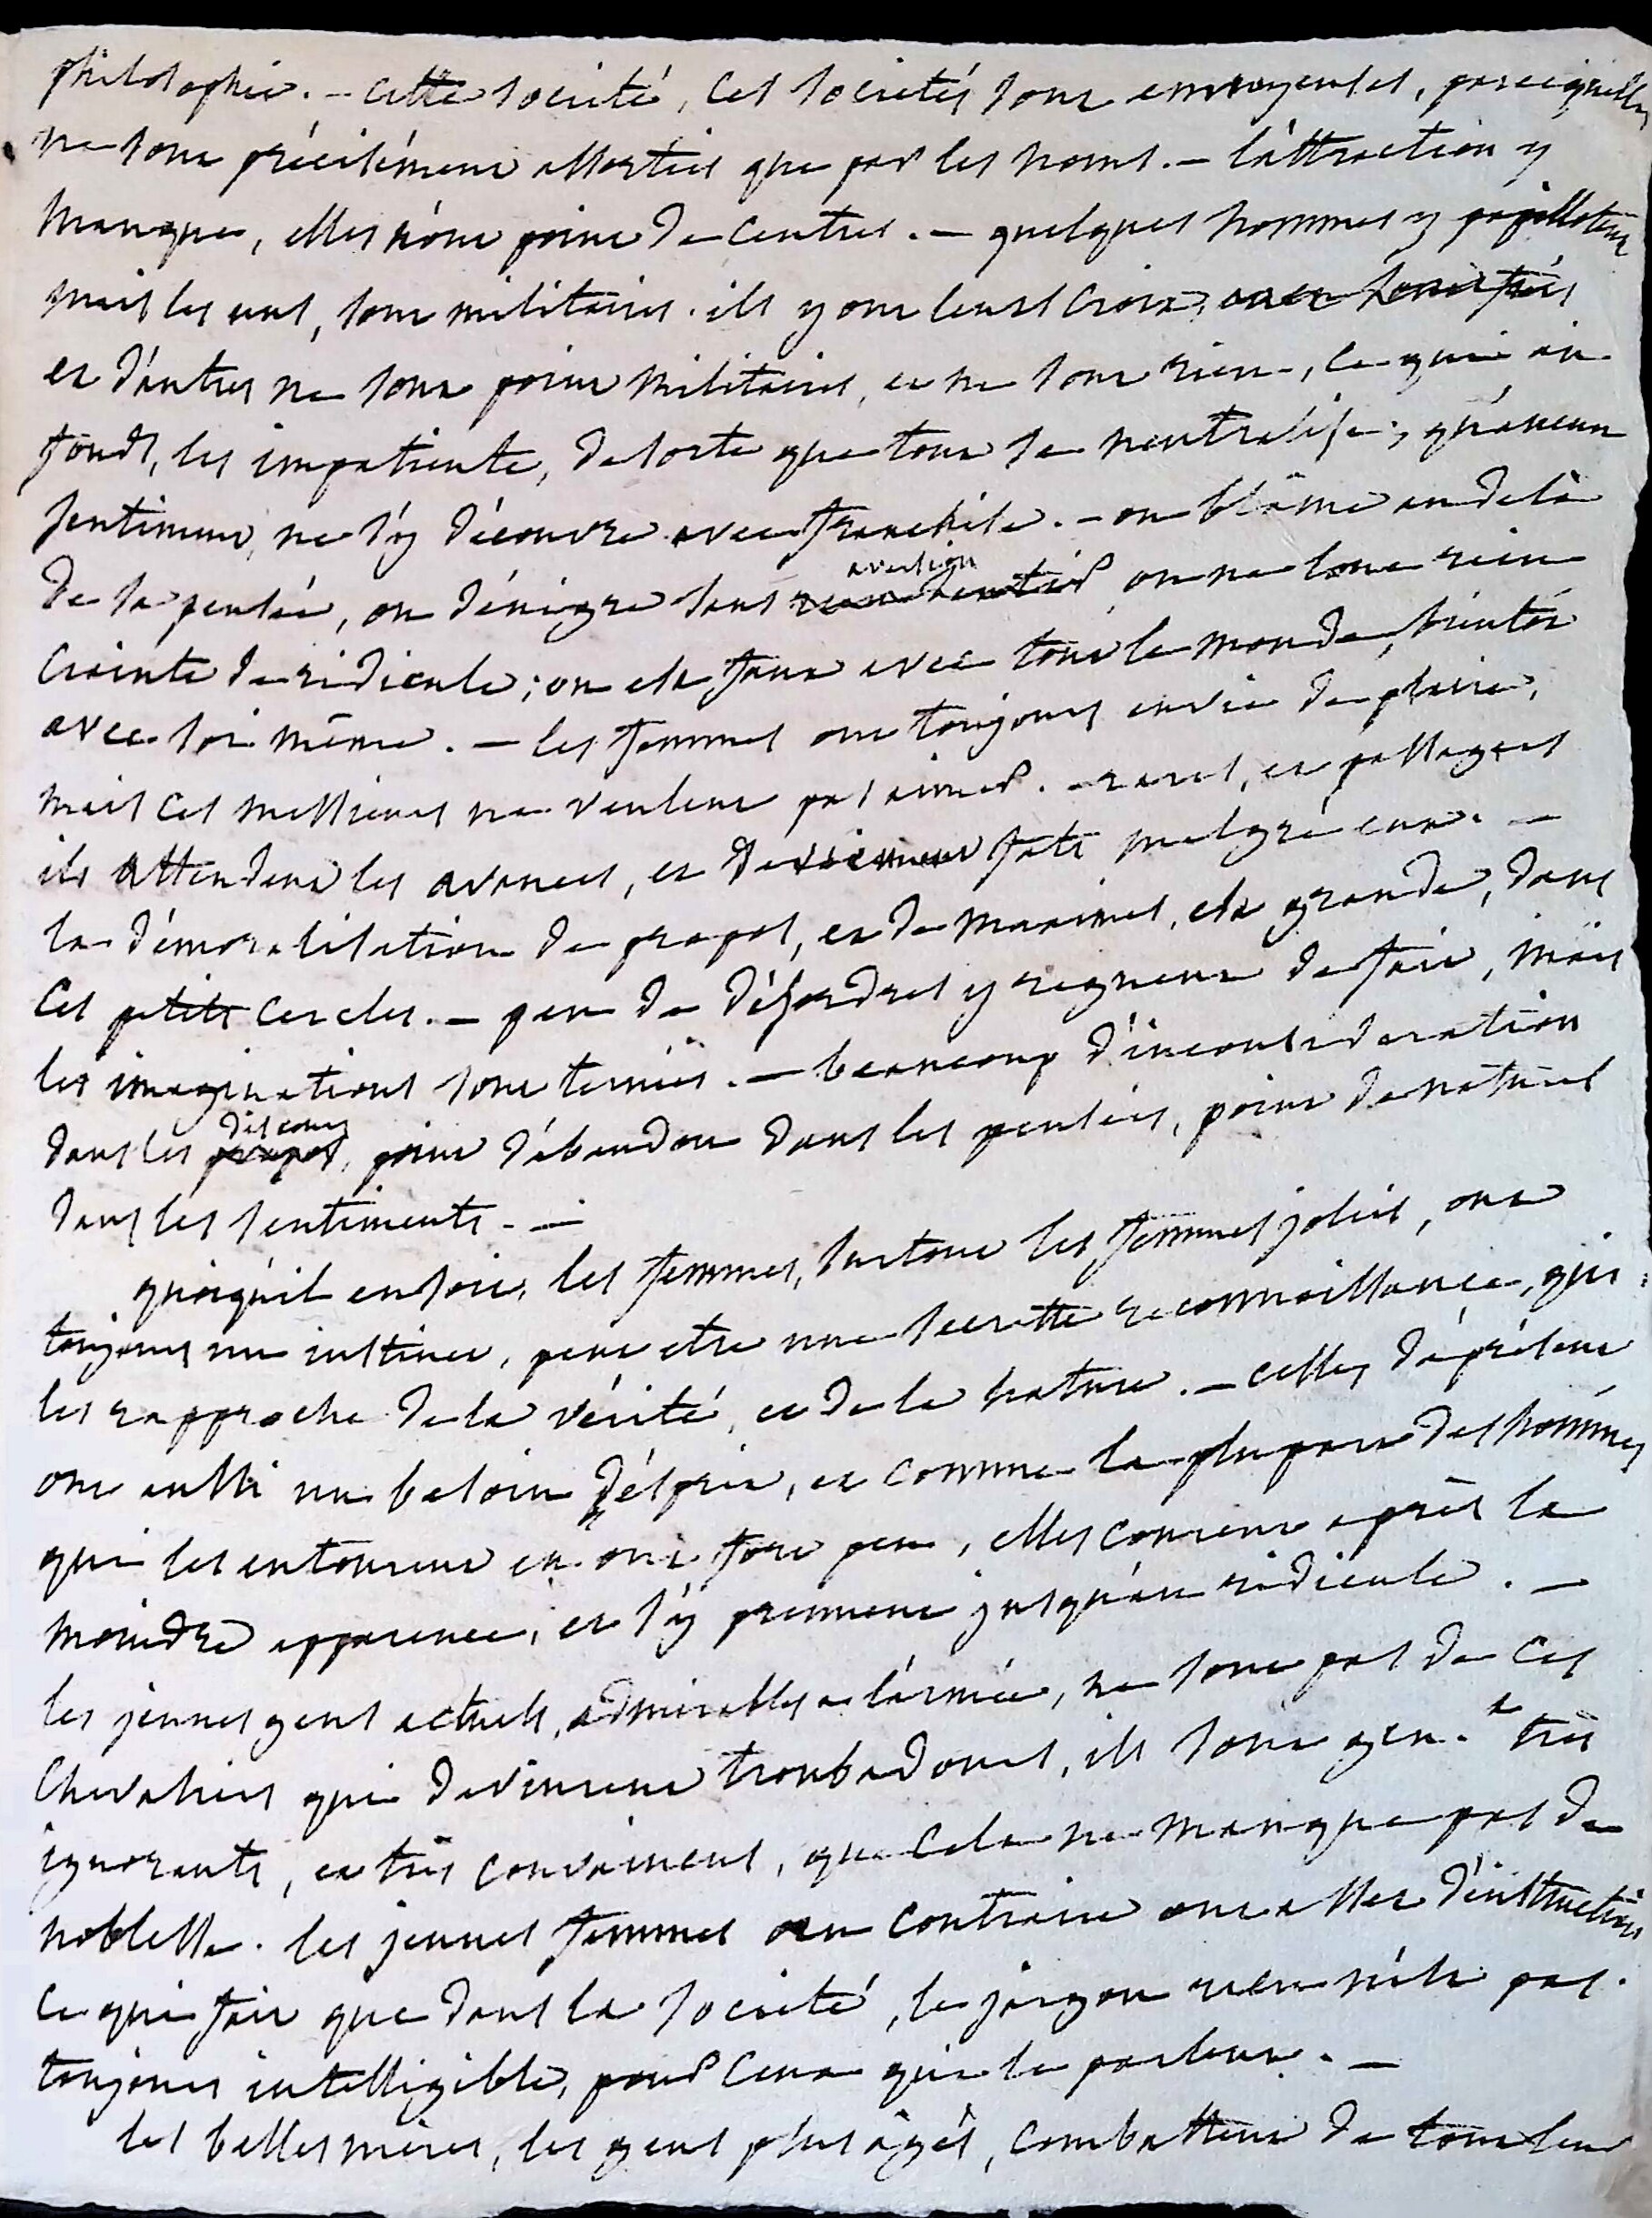 philosophie. - cette société, ces sociétés sont ennuyeuses, parcequ'elles
ne sont précisément assorties que par les noms. - l'attraction y
manque, elles n'ont point de centres. - quelques hommes y papillotent
mais les uns, sont militaires. ils y ont leurs croix,
et d'autres ne sont point militaires, et ne sont rien, ce qui au
fonds, les impatiente, de sorte que tout se neutralise, qu'aucun
sentiment, ne s'y découvre avec franchise. - on blâme au delà
de sa pensée, on dénigre sans aversion on ne loue rien
crainte de ridicule; on est faux avec tout le monde, bientôt
avec soi même. - les femmes ont toujours envie de plaire,
mais ces messieurs ne veulent pas aimer. - rares, et passagers
ils attendent les avances, et deviennent fats malgré eux. -
la démoralisation de propos, et de maximes, est grande, dans
ces petits cercles. - peu de désordres y regnent de fait, mais
les imaginations sont ternies. - beaucoup d'inconsidération
dans les propos, discours point d'abandon dans les pensées, point de naturel
dans les sentiments. -
quoiqu'il en soit, les femmes, surtout les femmes jolies, ont
toujours un instinct, peut etre une secrette reconnaissance, qui
les rapproche de la vérité, et de la nature. - celles d'àprésent
ont aussi un besoin d'esprit, et comme la plupart des hommes
qui les entourent en ont fort peu, elles courent après la
moindre apparence, et s'y prennent jusqu'au ridicule. -
les jeunes gens actuels, admirables a l'armée, ne sont pas de ces
chevaliers qui devinrent troubadours, ils sont gen. x très
ignorants, et très convaincus, que cela ne manque pas de
noblesse. les jeunes femmes au contraire ont assez d'instruction
ce qui fait que dans la société, le jargon n'est pas
toujours intelligible, pour ceux qui le parlent. -
les belles mères, les gens plus âgés, combattent de tout leur